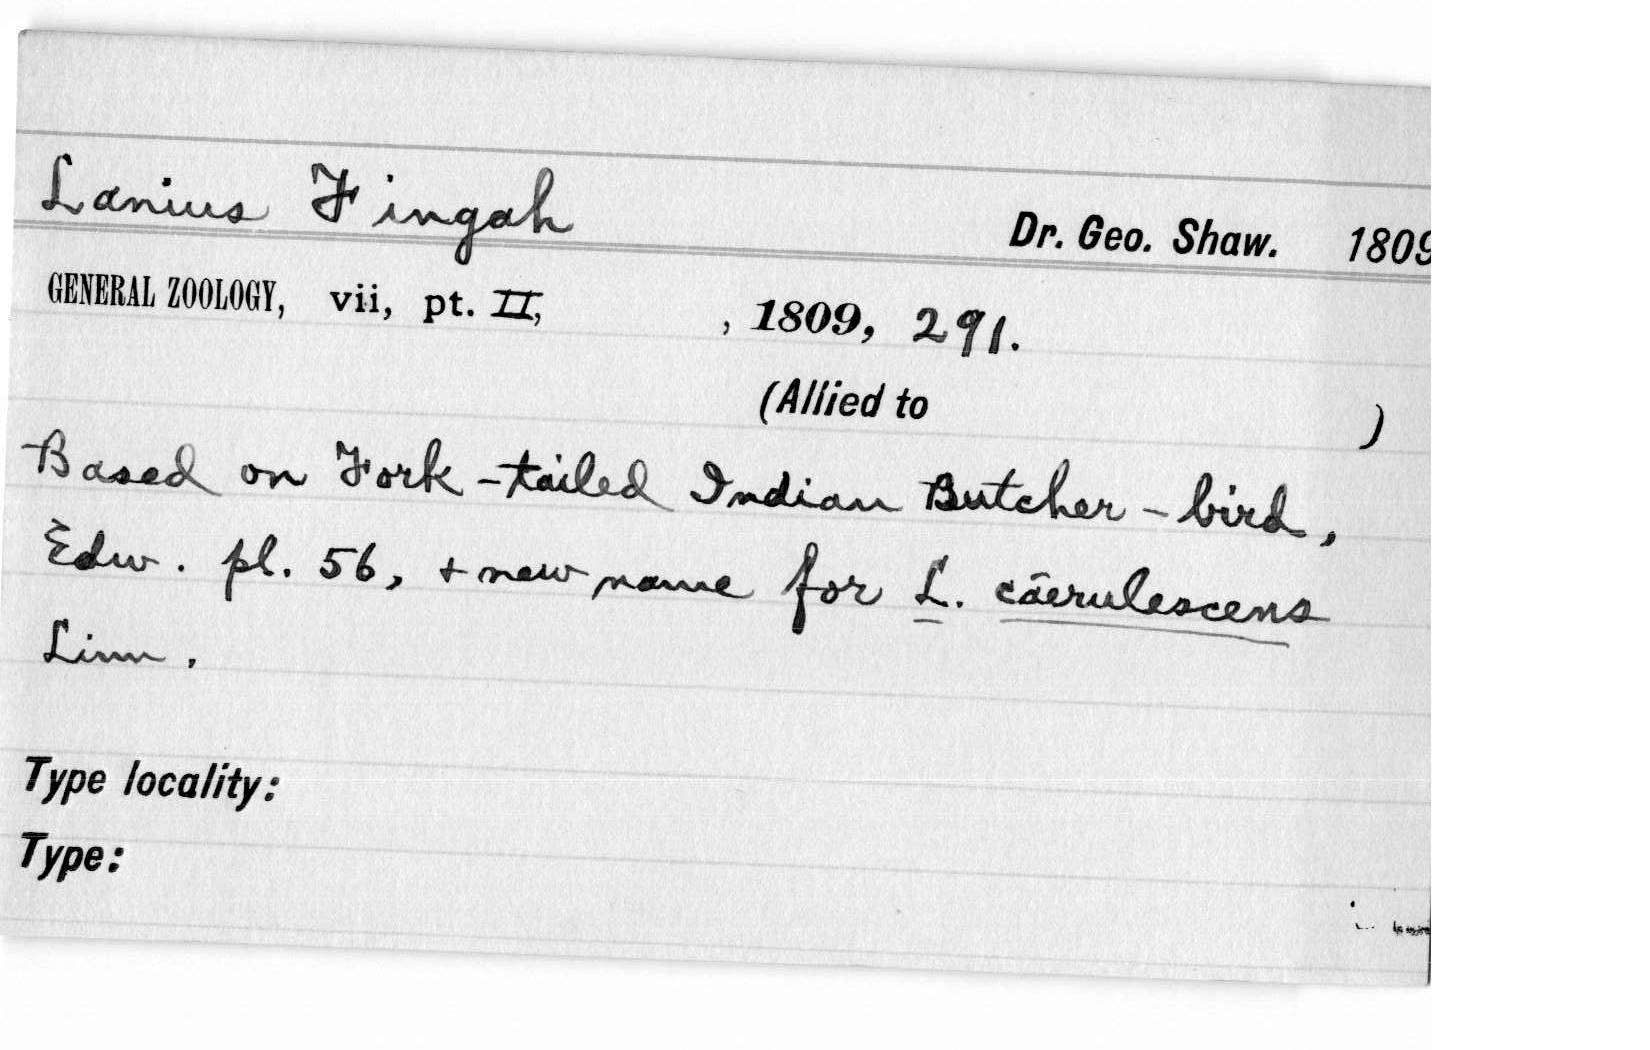 Lanius Fingah
Dr. Geo. Shaw. 1809
GENERAL ZOOLOGY, vii, pt. II, , 1809, 291.
(Allied to )
Based on Fork-tailed Indian Butcher-bird,
Edw. pl. 56, + new name for L. cāerulescens
Linn.
Type locality:
Type: